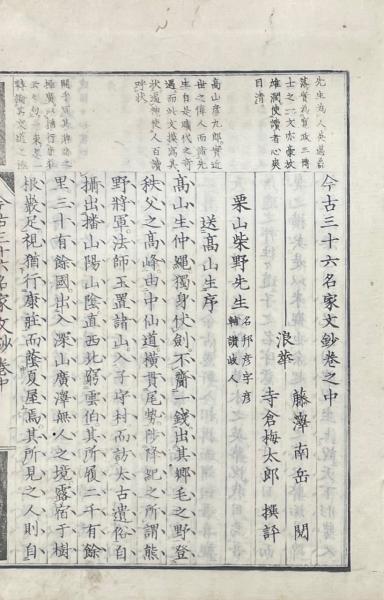 今古三十六名家文鈔卷之中
藤澤南岳 閱
浪華
寺倉梅太郎 撰評
栗山柴野先生 名邦彦字彦輔讚岐人
送高山生序
高山生仲繩獨身伏劍不齎一錢出其鄉毛之野登
秩父之高峰由中仙道橫貫尾勢陟降紀之所謂熊
野將軍法師玉置諸山入于守村而訪太古遺俗自
攝出播山陽山陰直西北窮雲伯其所履二千有餘
里三十有餘國出入深山廣澤無人之境露宿于樹
根巖足視猶行康莊而蔭夏屋焉其所見之人則自
先生為人英邁磊
士之一文亦豪放
雄潤使讀者心爽
目清
高山彦九郎實近
世之偉人而節先
生自是曠代之奇
遇而此文摸寫其
狀逼神使人百讀
呼快
今古三十六名家文鈔 卷中